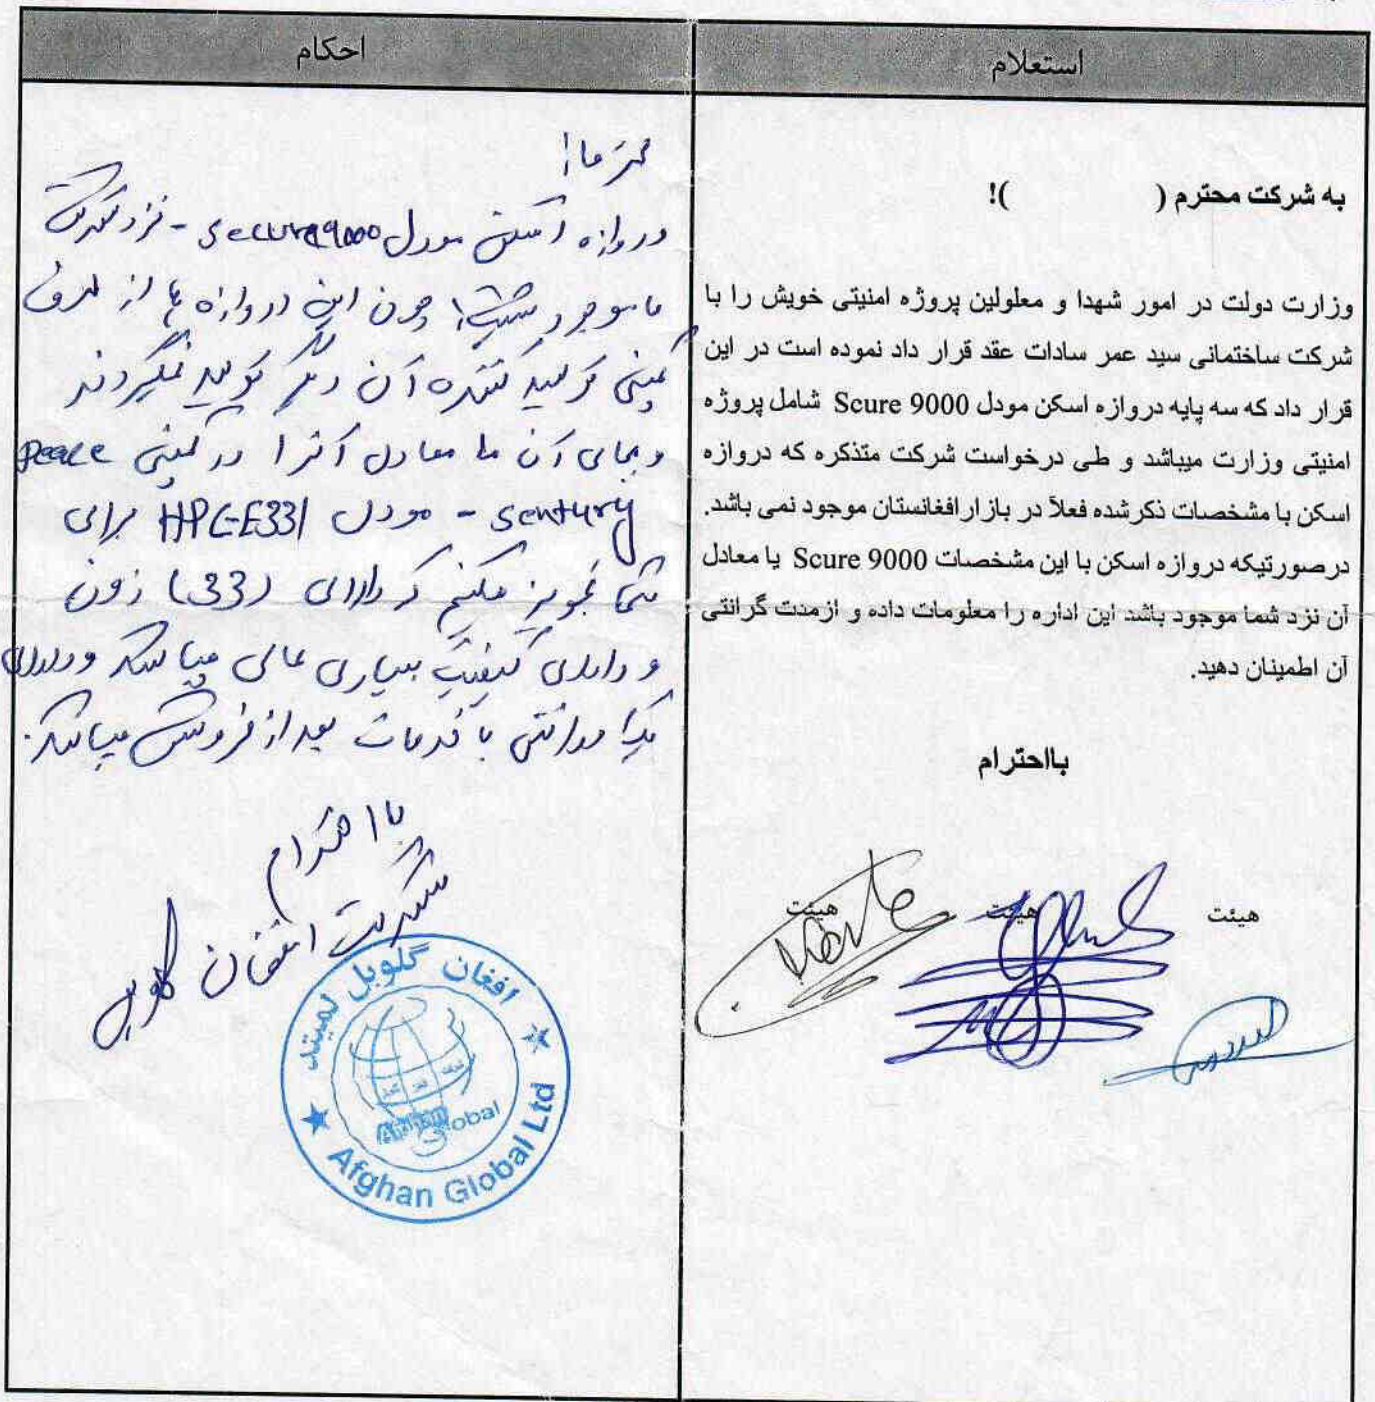 استعلام
به شرکت محترم (                    )!
وزارت دولت در امور شهدا و معلولین پروژه امنیتی خویش را با
شرکت ساختمانی سید عمر سادات عقد قرار داد نموده است در این
قرار داد که سه پایه دروازه اسکن مودل Scure 9000 شامل پروژه
امنیتی وزارت میباشد و طی درخواست شرکت متذکره که دروازه
اسکن با مشخصات ذکر شده فعلاً در بازار افغانستان موجود نمی باشد.
درصورتیکه دروازه اسکن با این مشخصات Scure 9000 یا معادل
آن نزد شما موجود باشد این اداره را معلومات داده و ازمدت گرانتی
آن اطمینان دهید.
بااحترام
هیئت هیئت هیئت
احکام
محترما!
دروازه اسکن مودل secure 9000 - نزد شرکت
ما موجود نیست! چون این دروازه ها از طرف
کمپنی تولید کننده آن دیگر تولید نمیگردند
و بجای آن ما معادل آنرا در کمپنی peace
sentury - مودل HPC-E331 برای
شما تجویز میکنیم که دارای (33) زون
و دارای کیفیت بسیاری عالی میباشد و دارای
ورانتی با خدمات بعد از فروش میباشد.
با احترام
شرکت افغان گلوبل
افغان گلوبل لمیتد
Afghan Global
Afghan Global Ltd